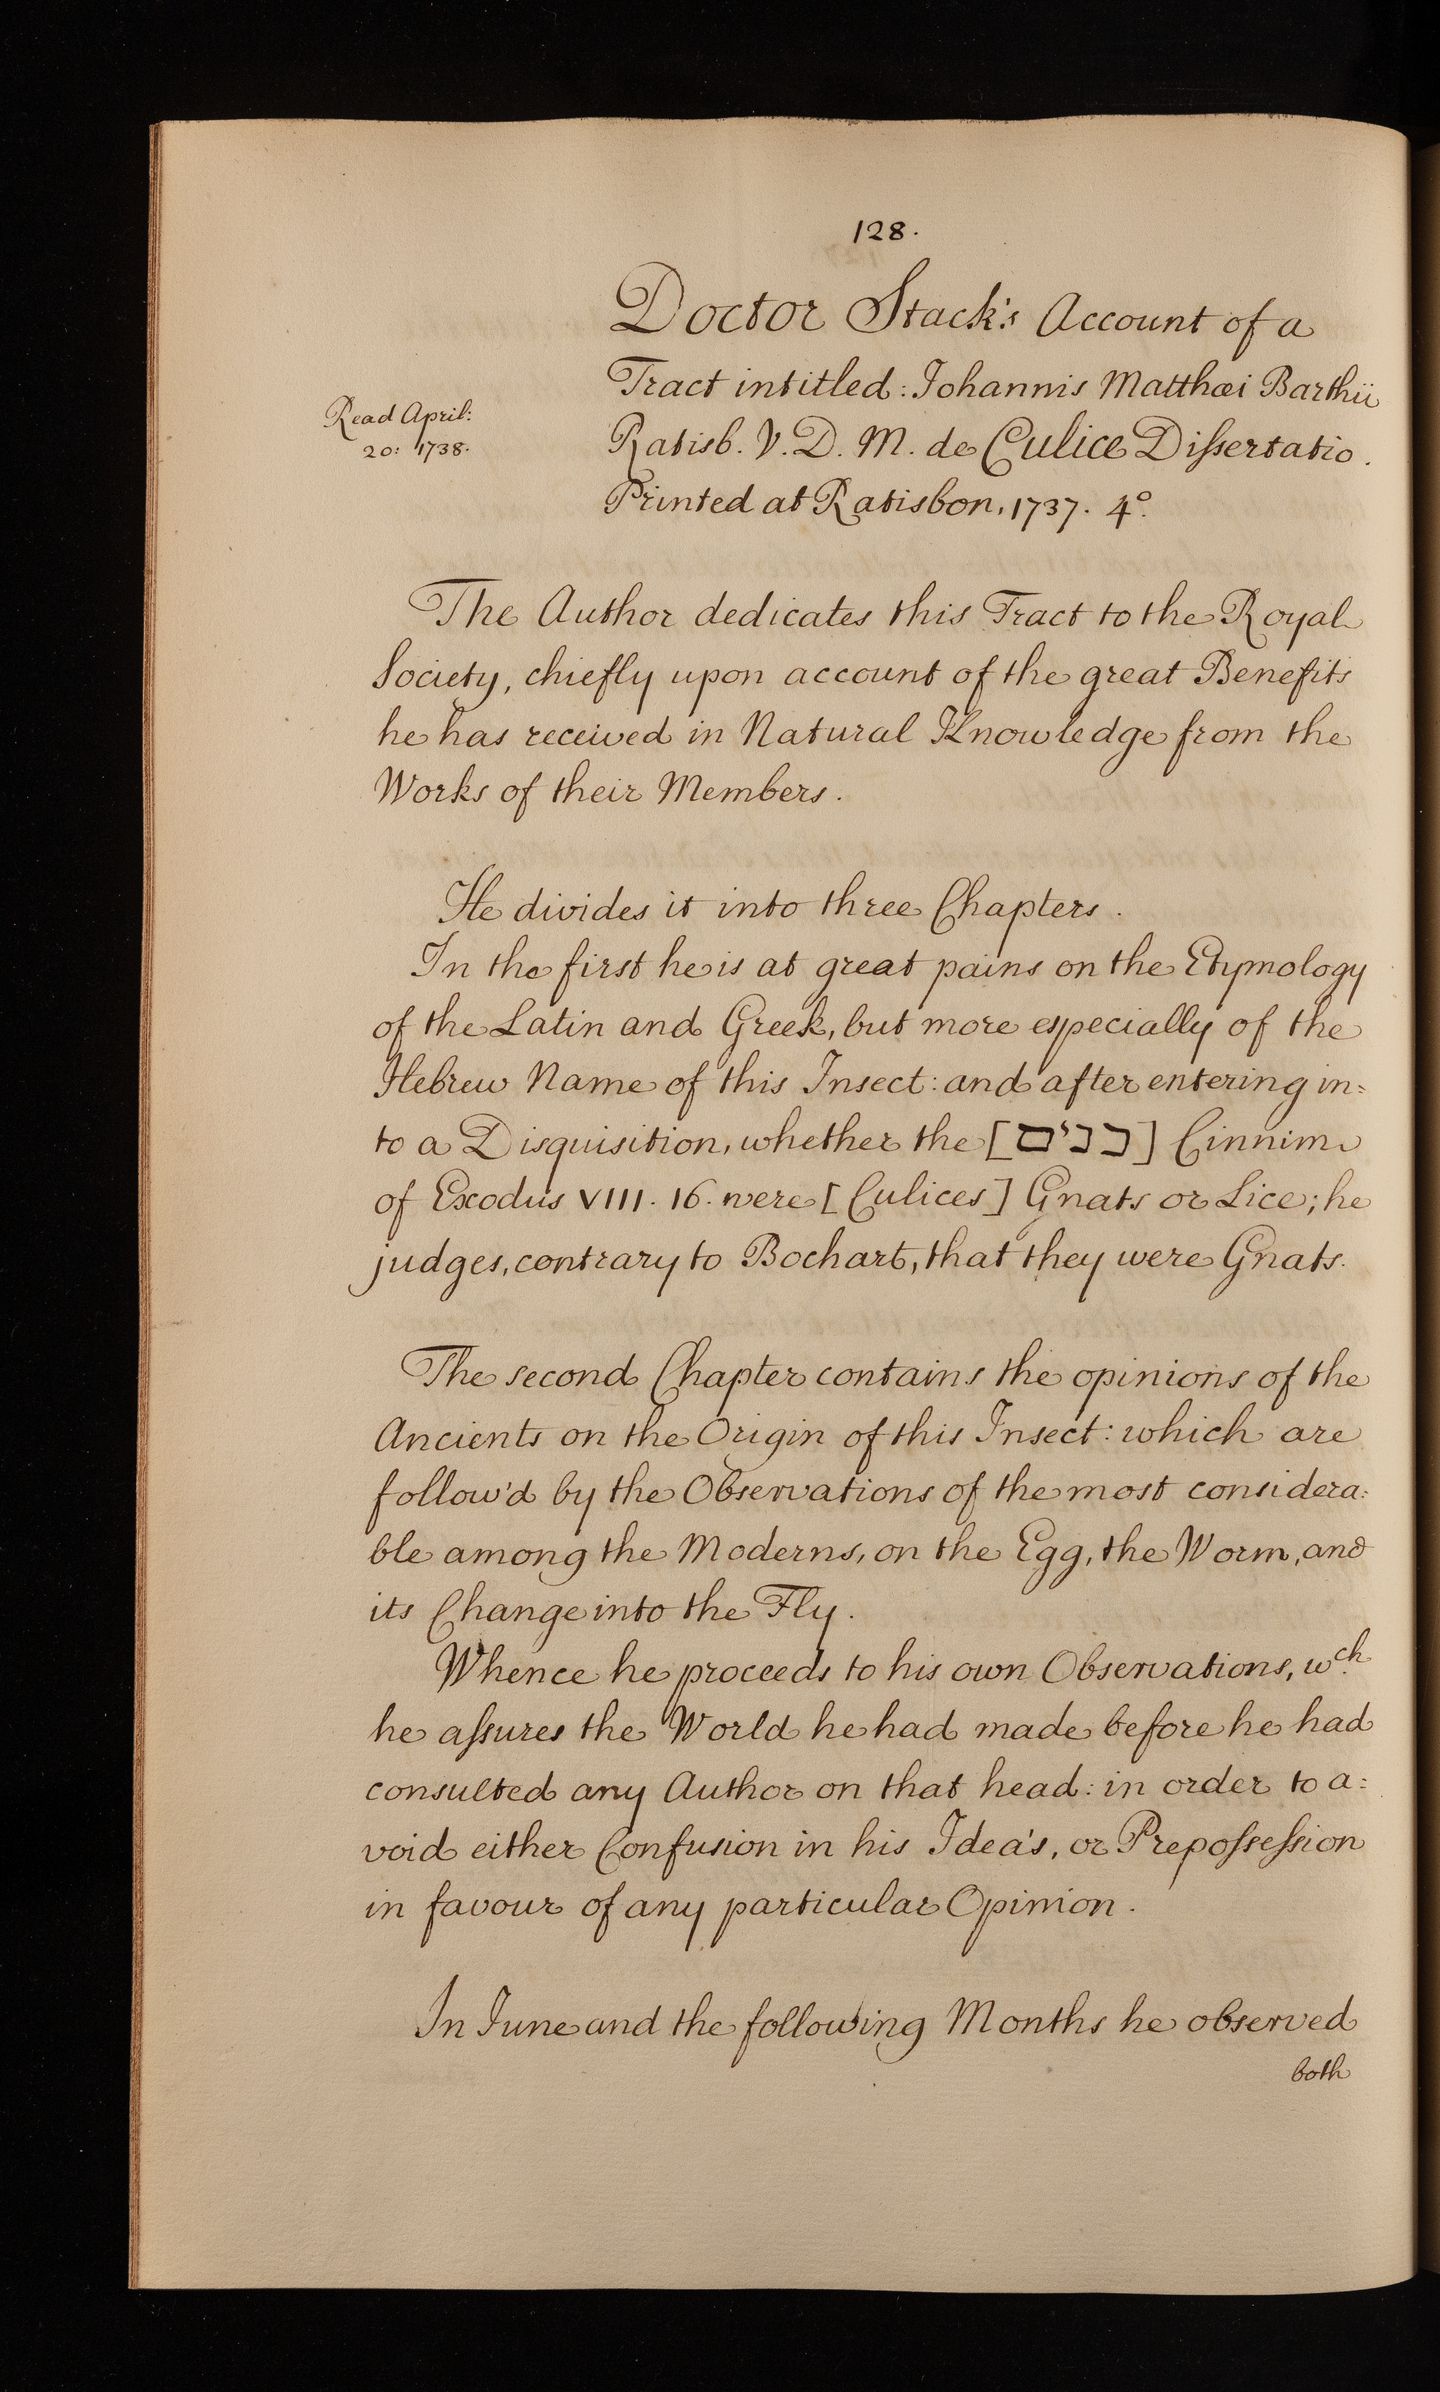 128.
Doctor Stack's Account of a
Tract intitled: Johannis Matthæi Barthii
Read April:
20: 1738.
Ratisb. V. D. M. de Culice Dissertatio.
Printed at Ratisbon, 1737. 4o.
The Author dedicates this Tract to the Royal
Society, chiefly upon account of the great Benefits
he has received in Natural Knowledge from the
Works of their Members.
He divides it into three Chapters.
In the first he is at great pains on the Etymology
of the Latin and Greek, but more especially of the
Hebrew Name of this Insect: and after entering in=
to a Disquisition, whether the [כנים] Cinnim
of Exodus VIII. 16. were [Culices] Gnats or Lice; he
judges, contrary to Bochart, that they were Gnats.
The second Chapter contains the opinions of the
Ancients on the Origin of this Insect: which are
follow'd by the Observations of the most considera=
ble among the Moderns, on the Egg, the Worm, and
its Change into the Fly.
Whence he proceeds to his own Observations, wch.
he assures the World he had made before he had
consulted any Author on that head: in order to a=
void either Confusion in his Idea's, or Prepossession
in favour of any particular Opinion.
In June and the following Months he observed
both